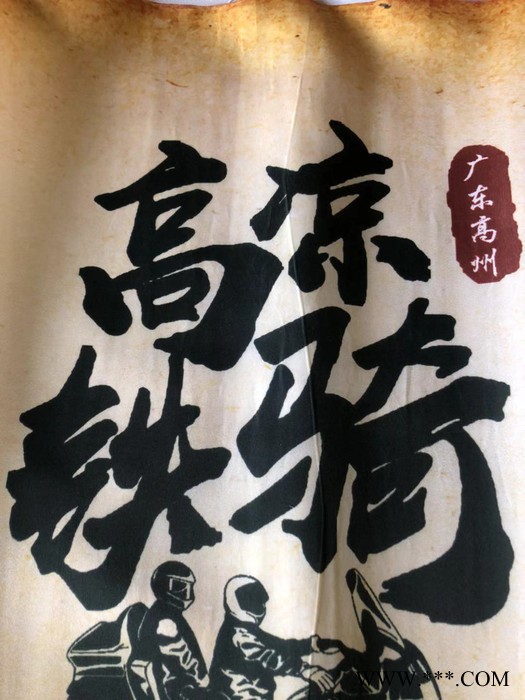 高凉
铁骑
广东高州
WWW.***.COM